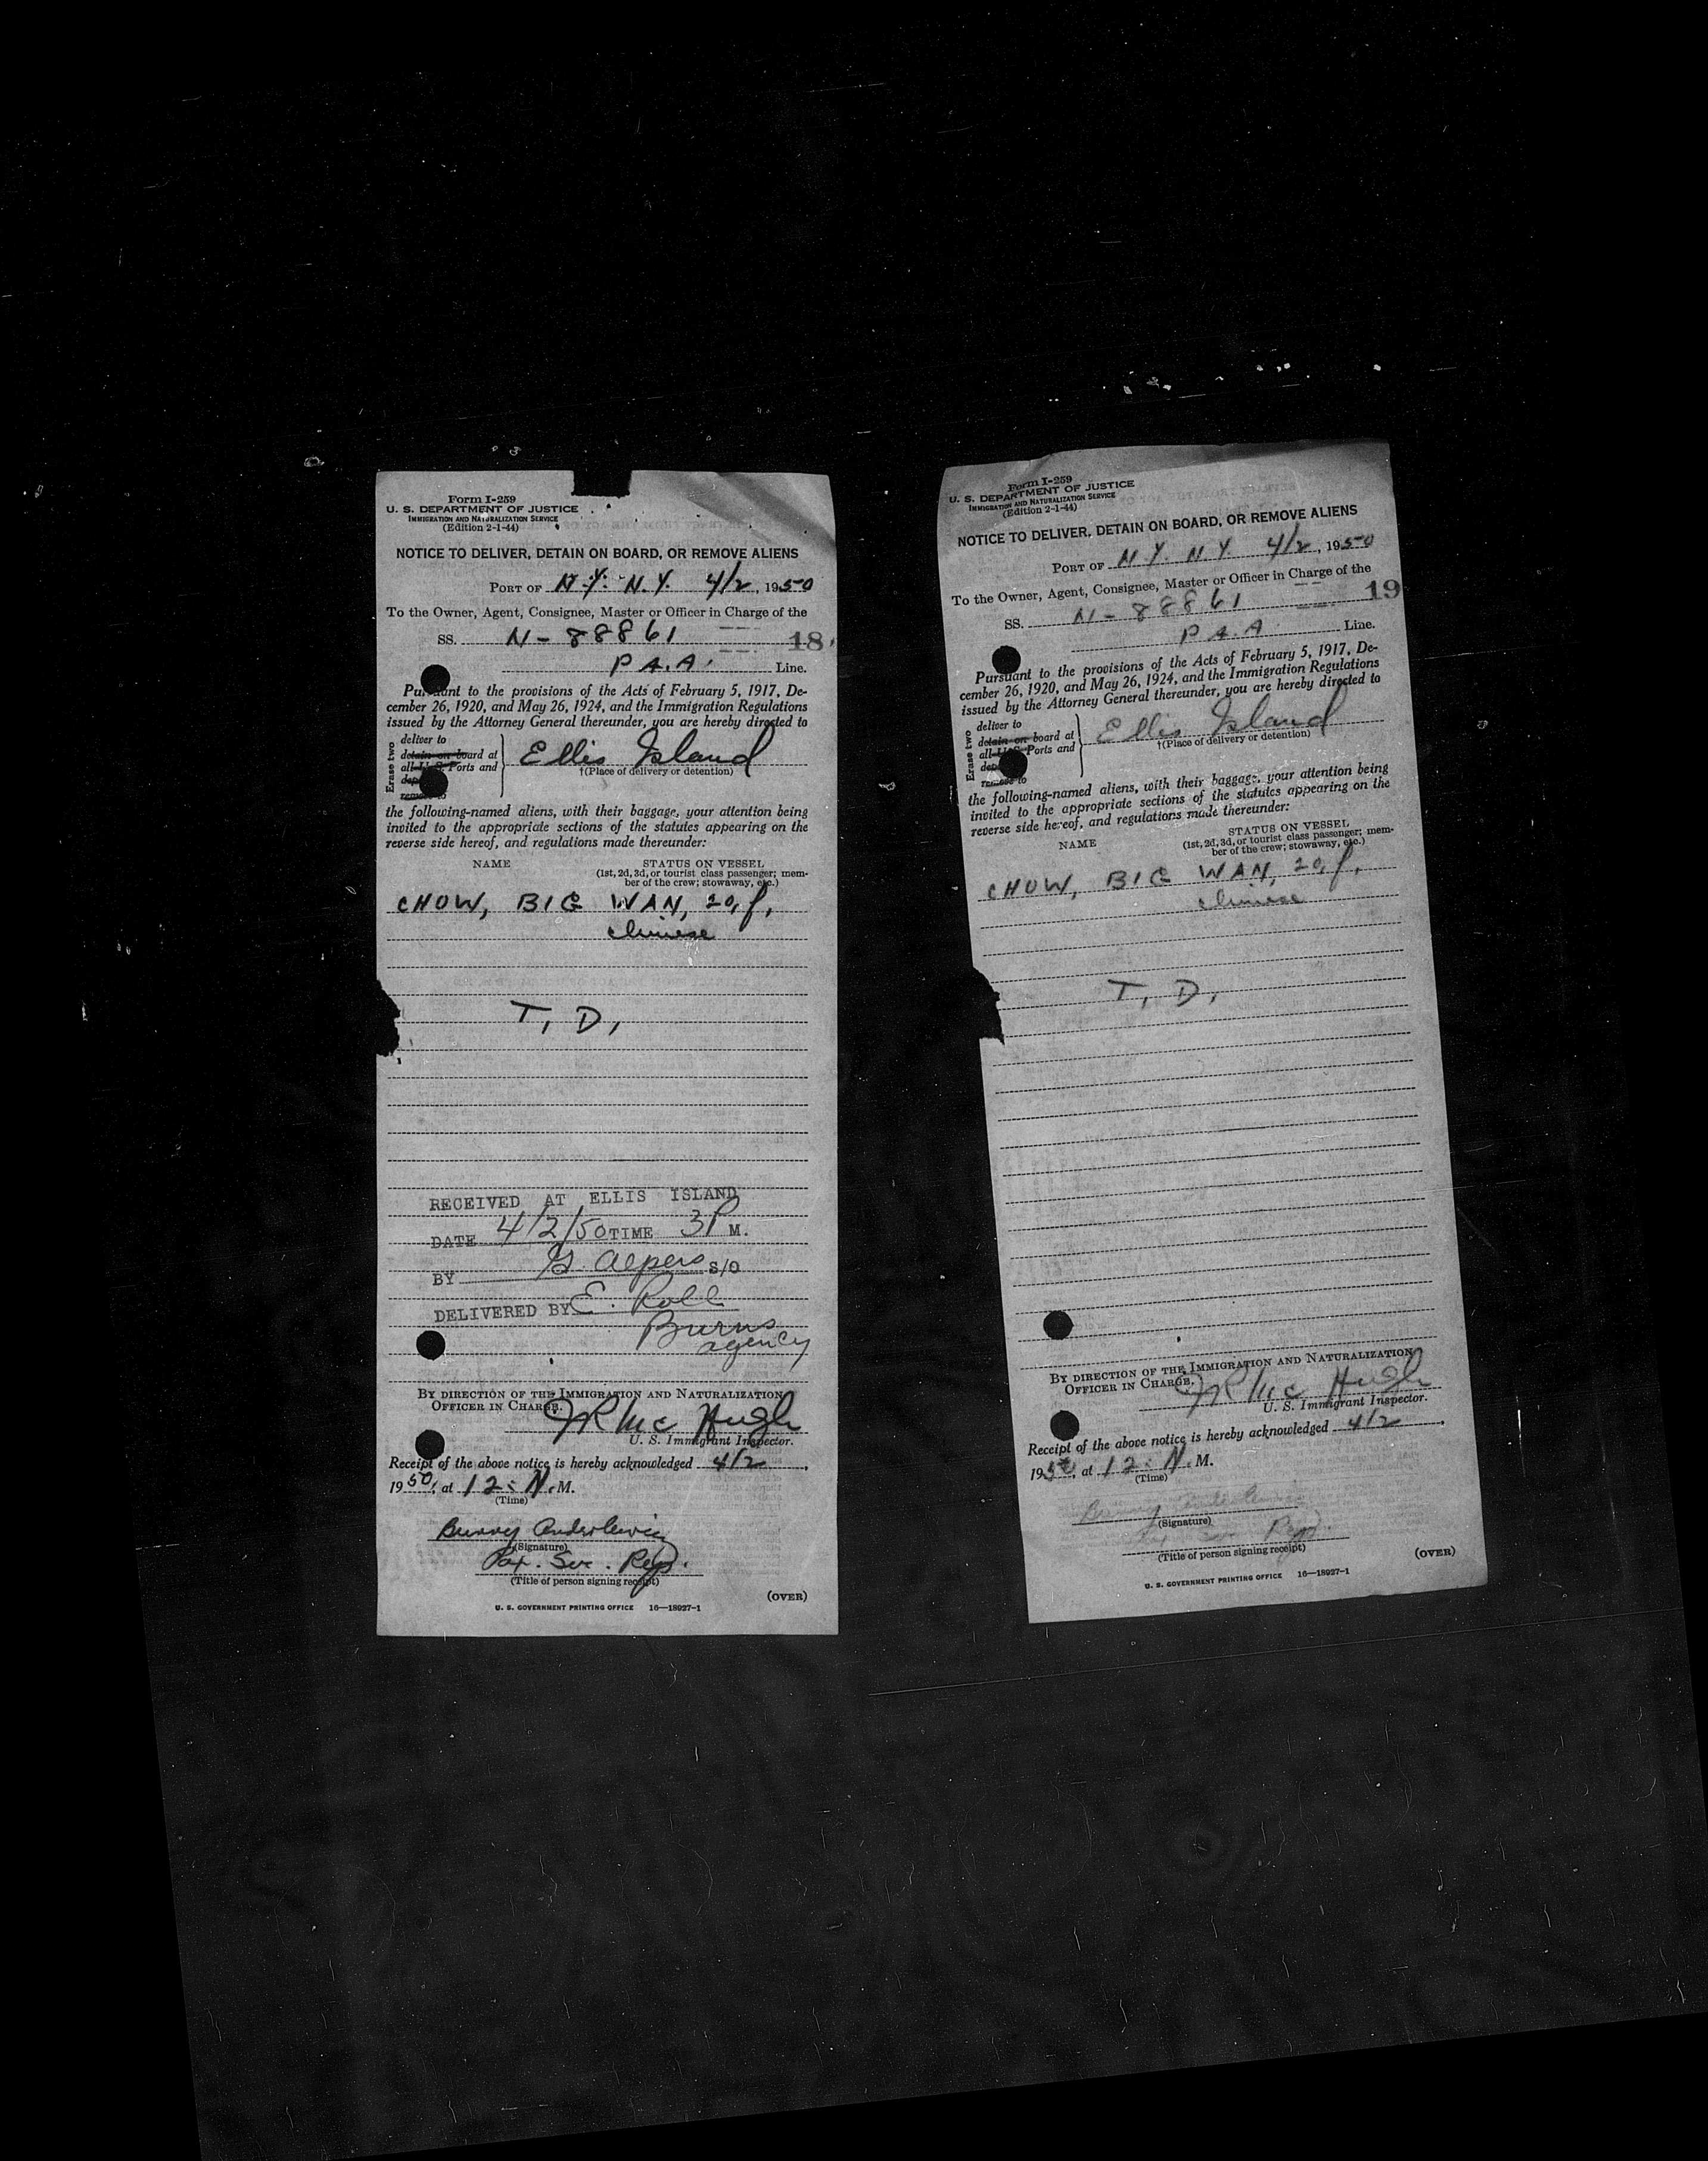 Form I-259
U. S. DEPARTMENT OF JUSTICE
IMMIGRATION AND NATURALIZATION SERVICE
(Edition 2-1-44)
NOTICE TO DELIVER, DETAIN ON BOARD, OR REMOVE ALIENS
PORT OF N.Y. N.Y. 4/2, 1950
To the Owner, Agent, Consignee, Master or Officer in Charge of the
SS. N-88861
18
P A.A. Line.
Pursuant to the provisions of the Acts of February 5, 1917, De-
cember 26, 1920, and May 26, 1924, and the Immigration Regulations
issued by the Attorney General thereunder, you are hereby directed to
Erase two
deliver to
detain on board at
all U.S. Ports and
remove to
Ellis Island
†(Place of delivery or detention)
the following-named aliens, with their baggage, your attention being
invited to the appropriate sections of the statutes appearing on the
reverse side hereof, and regulations made thereunder:
NAME STATUS ON VESSEL
(1st, 2d, 3d, or tourist class passenger; mem-
ber of the crew; stowaway, etc.)
CHOW, BIG WAN, 20, f,
chinese
T, D,
RECEIVED AT ELLIS ISLAND
DATE 4/2/50 TIME 3P M.
BY G. Alpers S/O
DELIVERED BY E. Roll
Burns
agency
BY DIRECTION OF THE IMMIGRATION AND NATURALIZATION
OFFICER IN CHARGE.
JR McHugh
U. S. Immigrant Inspector.
Receipt of the above notice is hereby acknowledged 4/2,
1950, at 12: N. M.
(Time)
Bunny
(Signature)
Pax. Svc. Rep.
(Title of person signing receipt)
(OVER)
U. S. GOVERNMENT PRINTING OFFICE 16—18927-1
Form I-259
U. S. DEPARTMENT OF JUSTICE
IMMIGRATION AND NATURALIZATION SERVICE
(Edition 2-1-44)
NOTICE TO DELIVER, DETAIN ON BOARD, OR REMOVE ALIENS
PORT OF N.Y. N.Y. 4/2, 1950
To the Owner, Agent, Consignee, Master or Officer in Charge of the
SS. N-88861
19
P A.A. Line.
Pursuant to the provisions of the Acts of February 5, 1917, De-
cember 26, 1920, and May 26, 1924, and the Immigration Regulations
issued by the Attorney General thereunder, you are hereby directed to
Erase two
deliver to
detain on board at
all U.S. Ports and
remove to
Ellis Island
†(Place of delivery or detention)
the following-named aliens, with their baggage, your attention being
invited to the appropriate sections of the statutes appearing on the
reverse side hereof, and regulations made thereunder:
NAME STATUS ON VESSEL
(1st, 2d, 3d, or tourist class passenger; mem-
ber of the crew; stowaway, etc.)
CHOW, BIG WAN, 20, f,
chinese
T, D,
BY DIRECTION OF THE IMMIGRATION AND NATURALIZATION
OFFICER IN CHARGE.
JR McHugh
U. S. Immigrant Inspector.
Receipt of the above notice is hereby acknowledged 4/2,
1950, at 12: N. M.
(Time)
Bunny
(Signature)
Rep.
(Title of person signing receipt)
(OVER)
U. S. GOVERNMENT PRINTING OFFICE 16—18927-1